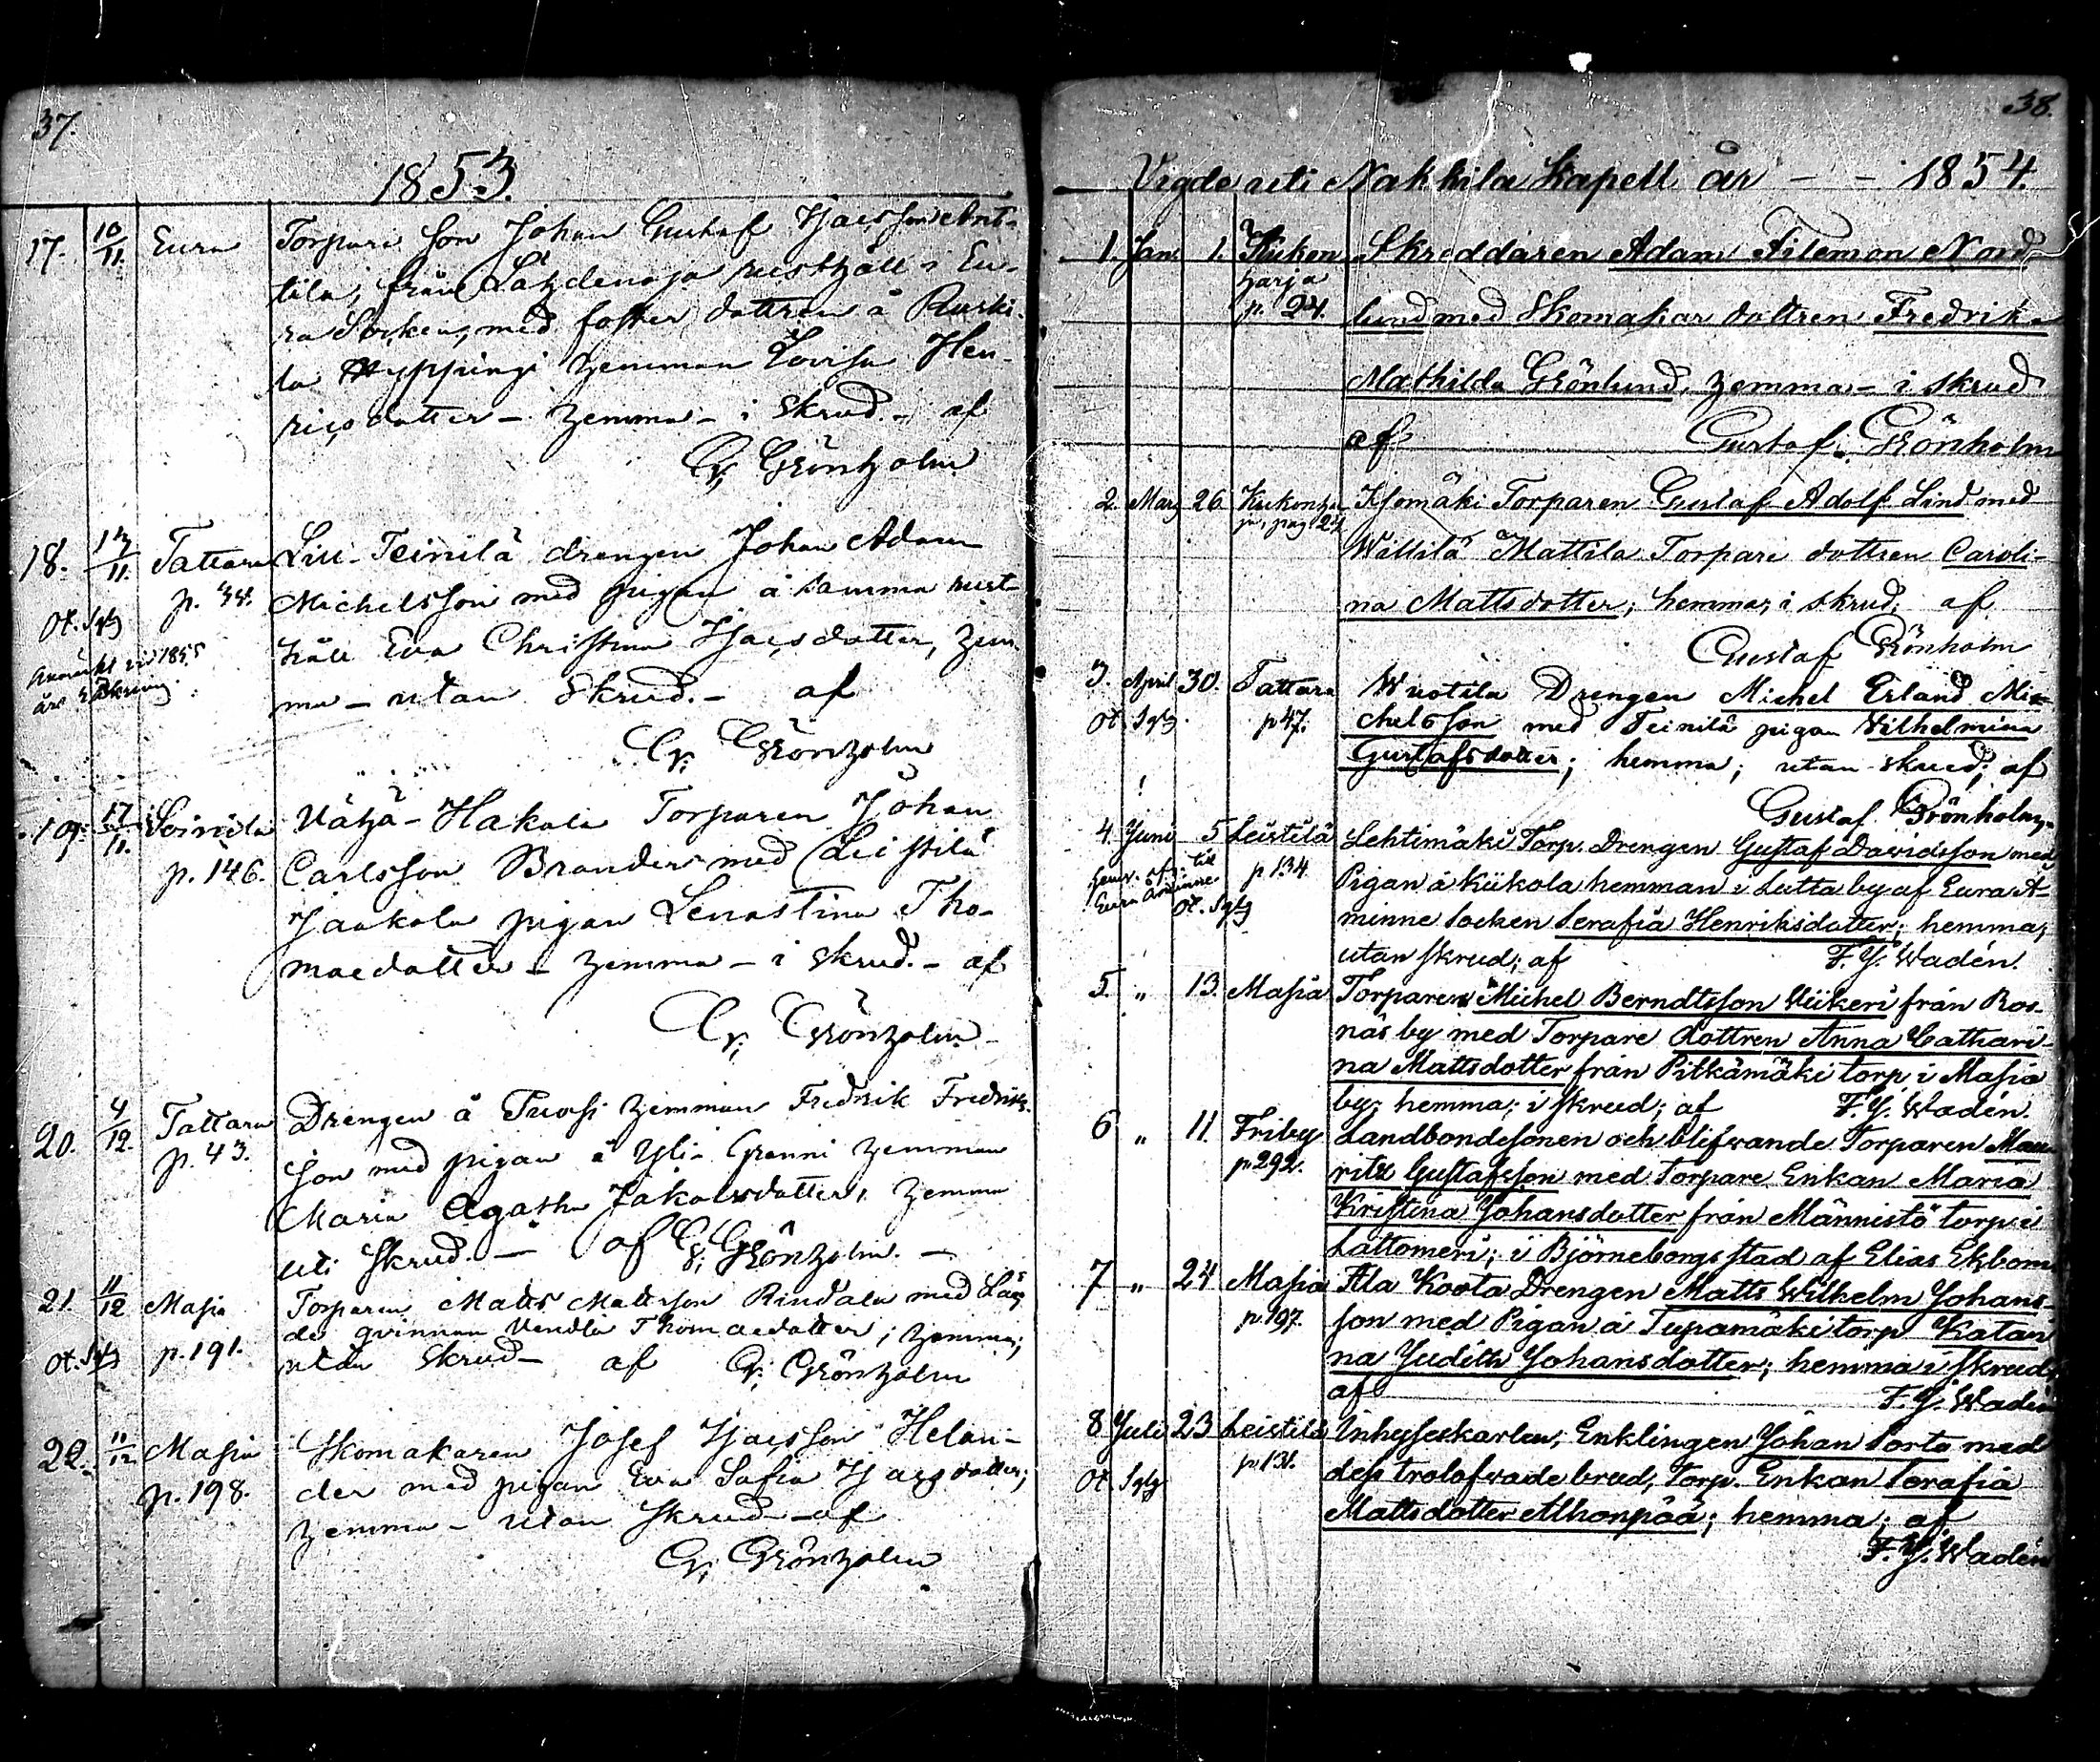 37.
1853.
17. 10/11. Eura Torpare Son Johan Gustaf Isacsson Ant-
tila, från Lähdenoja rusthåll i Eu-
ra Socken, med foster dottren å Ruski-
la Hyppingi hemman Lovisa Hen-
ricsdotter - hemma - i skrud. - af
G. Grönholm
18. 13/11. Tattara Liu-Teinilä drengen Johan Adam
p. 34. Michelsson med pigan å samma rust-
Ot. Sgtg håll Eva Christina Isacsdotter, hem-
Anmärkt vid 1855
års
ma - utan skrud. - af
G. Grönholm
19. 17/11. Soinila Vähä-Hakala Torparen Johan
p. 146. Carlsson Brander med Leistilä
Jaakola pigan Lenastina Tho-
maedotter - hemma - i skrud. - af
G. Grönholm
20. 4/12. Tattara Drengen å Tuosi hemman Fredrik Fredriks-
p. 43. son med pigan å Yli-Granni hemman
Maria Agatha Jakobsdotter, hemma
uti skrud. - af G. Grönholm. -
21. 11/12 Masia Torparen Matts Mattsson Rindala med Läg-
de qvinnan Vendla Thomaedotter; hemma;
Ot. Sgtg p. 191. utan skrud - af G. Grönholm
22. 11/12 Masia Skomakaren Josef Isacsson Helan-
p. 198. der med pigan Eva Sofia Isacsdotter;
hemma - utan skrud - af
G. Grönholm
38.
Vigde uti Nakkila Kapell år - - 1854.
1. Jan. 1. Kuken Skreddaren Adam Filemon Nord
harja
p. 24. lund med Skomakar dottren Fredrika
Mathilda Grönlund, hemma - i skrud
af Gustaf Grönholm
2. Mars 26 Kukonha Isomäki Torparen Gustaf Adolf Lind med
ju, pag 24
Wallila Mattila Torpare dottren Caroli-
na Mattsdotter; hemma; i skrud; af
Gustaf Grönholm
3. April 30. Tattara Wuotila Drengen Michel Erland Mi-
Ot. Sgtg p 47. chelsson med Teinilä pigan Wilhelmina
Gustafsdotter; hemma; utan skrud; af
Gustaf Grönholm
4. Juni 5 Leistilä Lehtimäki Torp. Drengen Gustaf Davidsson med
till p 134 Pigan å Kiikola hemman i Lutta by af Eura Å-
Eura Åminne
Ot. Sgtg minne socken Serafia Henriksdotter; hemma;
utan skrud; af F. Y. Wadén.
5. " 13. Masia Torparen Michel Berndtsson Wiikeri från Ros-
näs by med Torpare dottren Anna Cathari-
na Mattsdotter från Pitkämäki torp i Masia
by; hemma; i skrud; af F. Y. Wadén.
6 " 11. Friby Landbondesonen och blifvande Torparen Mau-
p 292. ritz Gustafsson med Torpare Enkan Maria
Kristina Johansdotter från Männistö torp i
Lattomeri; i Björneborgs stad af Elias Ekbom
7 " 24 Masia Ala Koota Drengen Matts Wilhelm Johans-
p 197. son med Pigan å Tupamäki torp Katari
na Judith Johansdotter; hemma i skrud;
af F. Y. Wadén
8 Juli 23 Leistilä Inhyseskarlen, Enklingen Johan Porto med
Ot. Sgtg p 131. dess trolofvade brud, Torp. Enkan Serafia
Mattsdotter Alhonpää; hemma; af
F. Y. Wadén